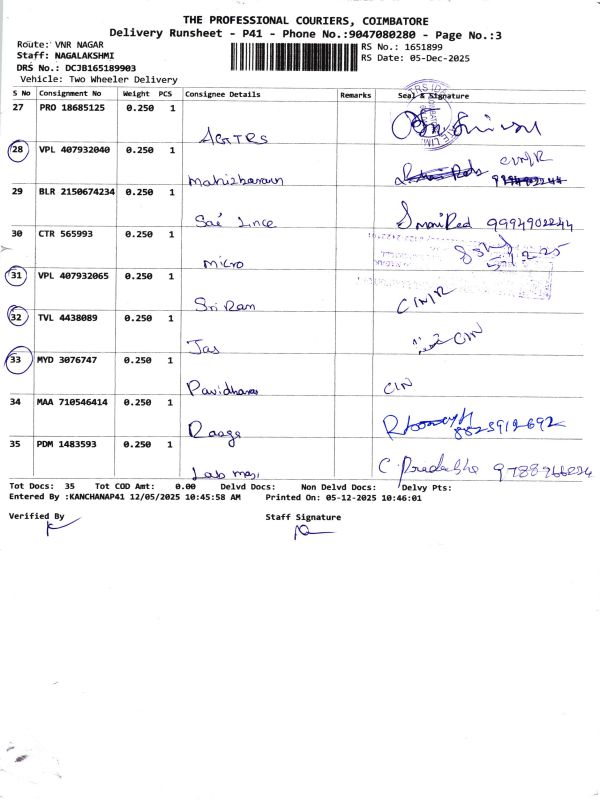 THE PROFESSIONAL COURIERS, COIMBATORE
Delivery Runsheet - P41 - Phone No.:9047080280 - Page No.:3
Route: VNR NAGAR
Staff: NAGALAKSHMI
DRS No.: DCJB165189903
Vehicle: Two Wheeler Delivery
RS No.: 1651899
RS Date: 05-Dec-2025
S No Consignment No Weight PCS Consignee Details Remarks Seal & Signature
27 PRO 18685125 0.250 1
AGTRS
28 VPL 407932040 0.250 1 CIN/R
Mahizhavarm
29 BLR 2150674234 0.250 1
Sai Lince 9994902244
30 CTR 565993 0.250 1
Micro 5/12/25
31 VPL 407932065 0.250 1
Sri Ram CIN/R
32 TVL 4438089 0.250 1
Jas CIN
33 MYD 3076747 0.250 1
Pavidharas CIN
34 MAA 710546414 0.250 1
Raaga 8825912692
35 PDM 1483593 0.250 1
Lab mas, C Pradeebha 9788266224
Tot Docs: 35 Tot COD Amt: 0.00 Delvd Docs: Non Delvd Docs: Delvy Pts:
Entered By :KANCHANAP41 12/05/2025 10:45:58 AM Printed On: 05-12-2025 10:46:01
Verified By Staff Signature